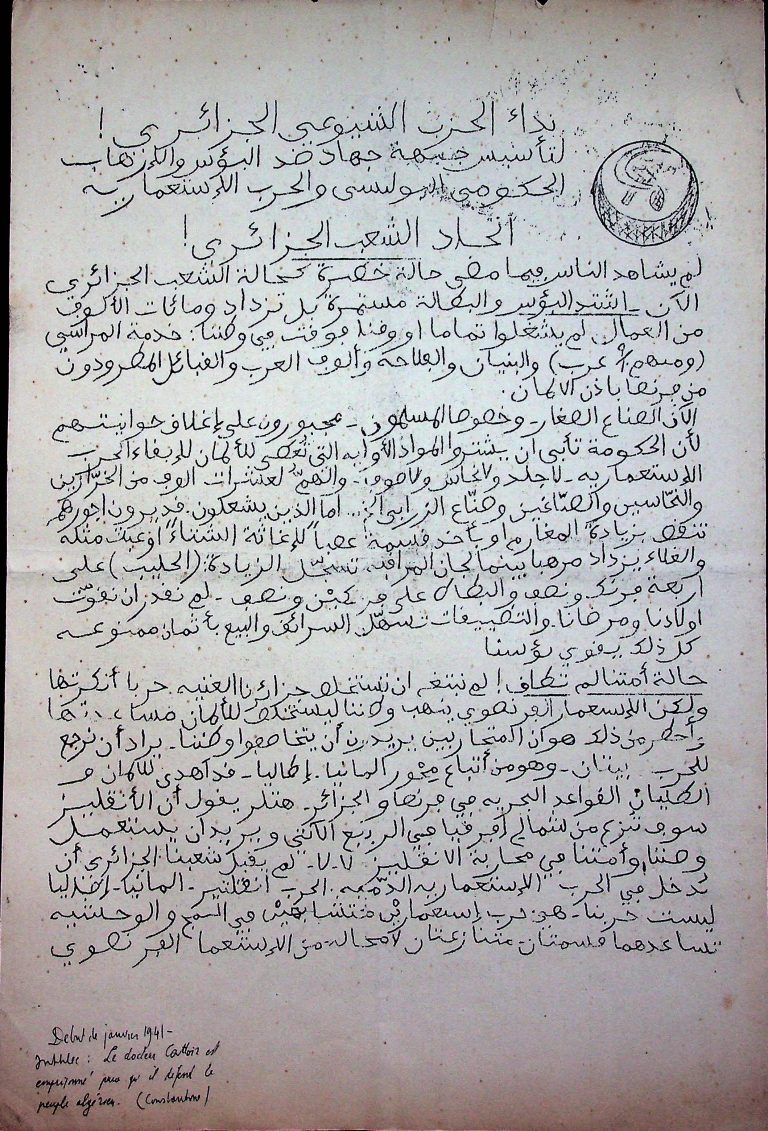 نداء الحزب الشيوعي الجزائري !
لتأسيس جبهة جهاد ضد البؤس والإرهاب
الحكومي البوليسي والحرب الإستعمارية
اتحاد الشعب الجزائري !
لم يشاهد الناس فيما مضى حالة خطرة كحالة الشعب الجزائري
الآن - اشتد البؤس والبطالة مستمرة بل تزداد ومائات الألوف
من العمال لم يشغلوا تماما او وقتا موقت في وطننا : خدمة المراسي
(ومنهم عرب) والبنيان والفلاحة وألوف العرب والقبائل المطرودون
من فرنسا بإذن الألمان.
الآن الصناع الصغار - وخصوصا المسلمون - مجبورون على إغلاق حوانيتهم
لأن الحكومة تأبى ان يشتروا المواد الأوليه التي تُعطى للألمان للإبقاء الحرب
الإستعماريه - لا جلد ولا نحاس ولا صوف - والتهمّ لعشرات الوف من الخرّازين
والنحّاسين والصبّاغين وصنّاع الزرابي الخ. اما الذين يشغلون فديرون اجورهم
تنقص بزيادة المغارم او بأخذ قسمة غصباً للإغاثة الشتاء او غيث مثله
والغلاء يزداد مرهبا بينما لجان المراقبة تسجّل الزيادة : (الحليب) على
اربعة فرنك ونصف والبطاطه على فرنكين ونصف - لم نقدر ان نقوت
اولادنا ومرضانا. والتضييقات تسهّل السرائق والبيع بأثمان ممنوعه
كل ذلك يقوي بؤسنا
حالة أمتنا لم تطاق ! لم نبتغ ان تستخلص جزائرنا الغنيه حربا أنكرتها
ولكن الإستعمار الفرنصوي ينهب وطننا ليستخلص للألمان
وأخطر من ذلك هو أن المتحاربين يريدون أن يتخاصموا وطننا - يراد أن نرجع
للحرب بيتان - وهو من أتباع مِحْور المانيا - إطاليا - قد اهدى للألمان و
الطليان القواعد البحريه في فرنسا والجزائر - هتلر يقول أن الأنقليز
سوف تنزع من شمالي إفرقيا في الربيع الآتي ويريد ان يستعمل
وطننا وأمتنا في محاربة الانقليز لا - لا - لم يقبل شعبنا الجزائري أن
تدخل في الحرب الإستعماريه الدّمّيه. الحرب أنقلتير - المانيا - إطاليا
ليست حربنا - هي حرب إستعماريْن متشابهيْن في السم والوحشيه
تساعدهما قسمتان متنازعتان لا محالة من الإستعمار الفرنصوي
Début de janvier 1941 -
Intitulé : Le docteur Cattoir est
emprisonné parce qu'il défend le
peuple algérien. (Constantine)